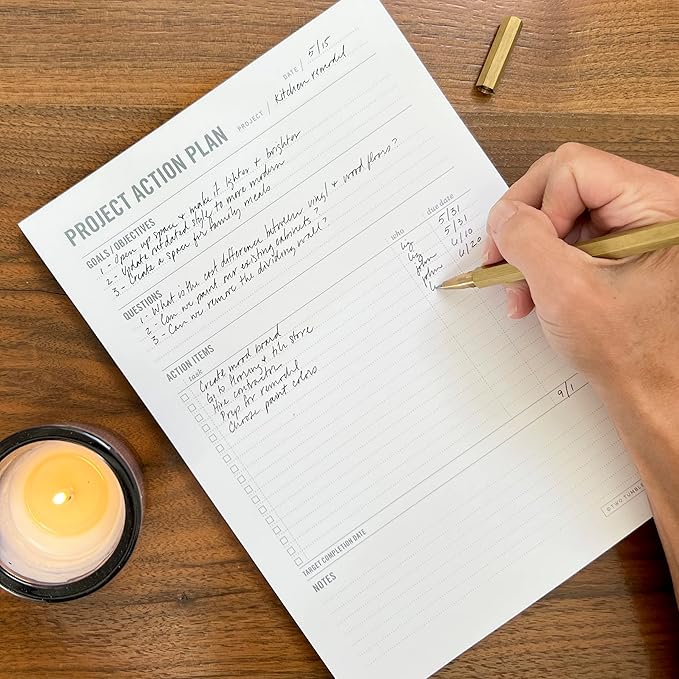 DATE / 5/15
PROJECT / Kitchen remodel
PROJECT ACTION PLAN
GOALS / OBJECTIVES
1 - Open up space & make it lighter + brighter
2 - Update outdated style to more modern
3 - Create a space for family meals
QUESTIONS
1 - What is the cost difference between vinyl & wood floors?
2 - Can we paint our existing cabinets?
3 - Can we remove the dividing wall?
ACTION ITEMS
task who due date
Create mood board 5/31
Go to flooring & tile store 5/31
Hire contractor John 6/10
Prep for remodel John 6/20
Choose paint colors
TARGET COMPLETION DATE 9/1
NOTES
© TWO TUMBLE